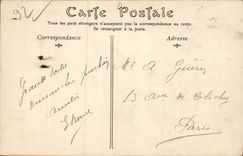 92
Carte Postale
Tous les pays étrangers n'acceptent pas la correspondance au recto.
Se renseigner à la poste.
Correspondance
Adresse
Grande
dimanche prochain
amitiés
Mr A Guérin
13 Ave de Clichy
Paris